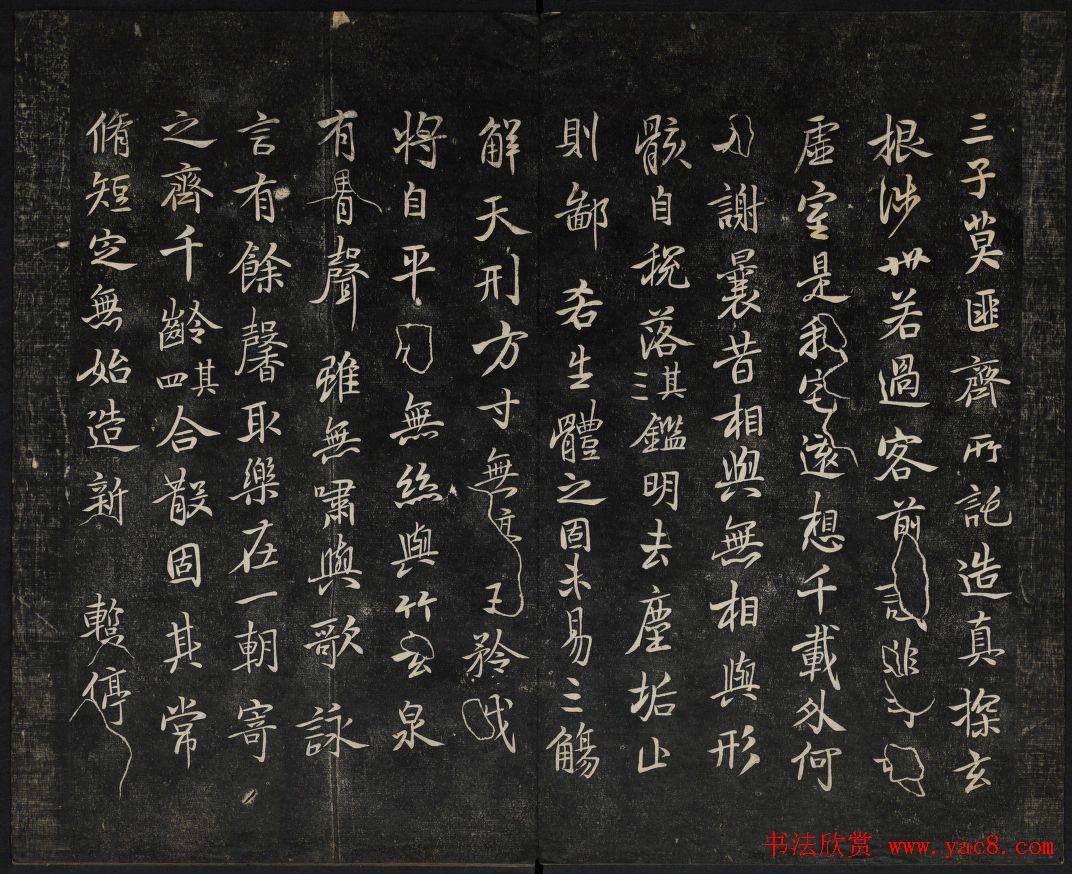 三子莫匪齊所託造真探玄
根涉卅若過客前非
虛室是我宅遠想千載外何
謝曩昔相與無相與形
骸自稅落其三鑑明去塵垢止
則鄙吝生體之固未易三觴
解天刑方寸無主矜伐
將自平無絲與竹玄泉
有聲雖無嘯與歌詠
言有餘馨取樂在一朝寄
之齊千齡其四合散固其常
脩短定無始造新暫停
书法欣赏 www.yac8.com